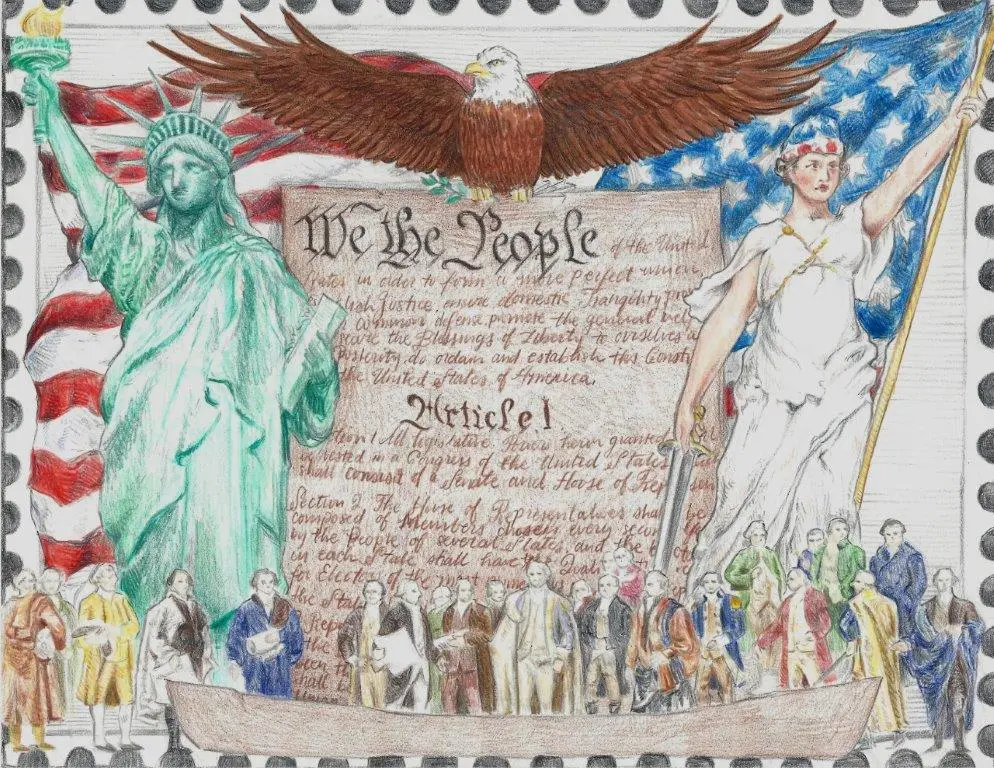 We the People of the United
States in oder to form a more perfect union,
establish Justice, insure domestic Tranquility, pro
common defense, promote the general wel
secure the Blessings of Liberty to ourselves a
Posterity, do ordain and establish this Consti
the United States of America.
Article I
ction 1 All legislative Powers herein granted
vested in a Congress of the United States
shall consist of a Senate and House of Repre
Section 2 The House of Representatives shall be
composed of Members chosen every
by the People of several States, and the
in each State shall have the Quali
for Electors of the most nume
the Stat
Rep
the
shall